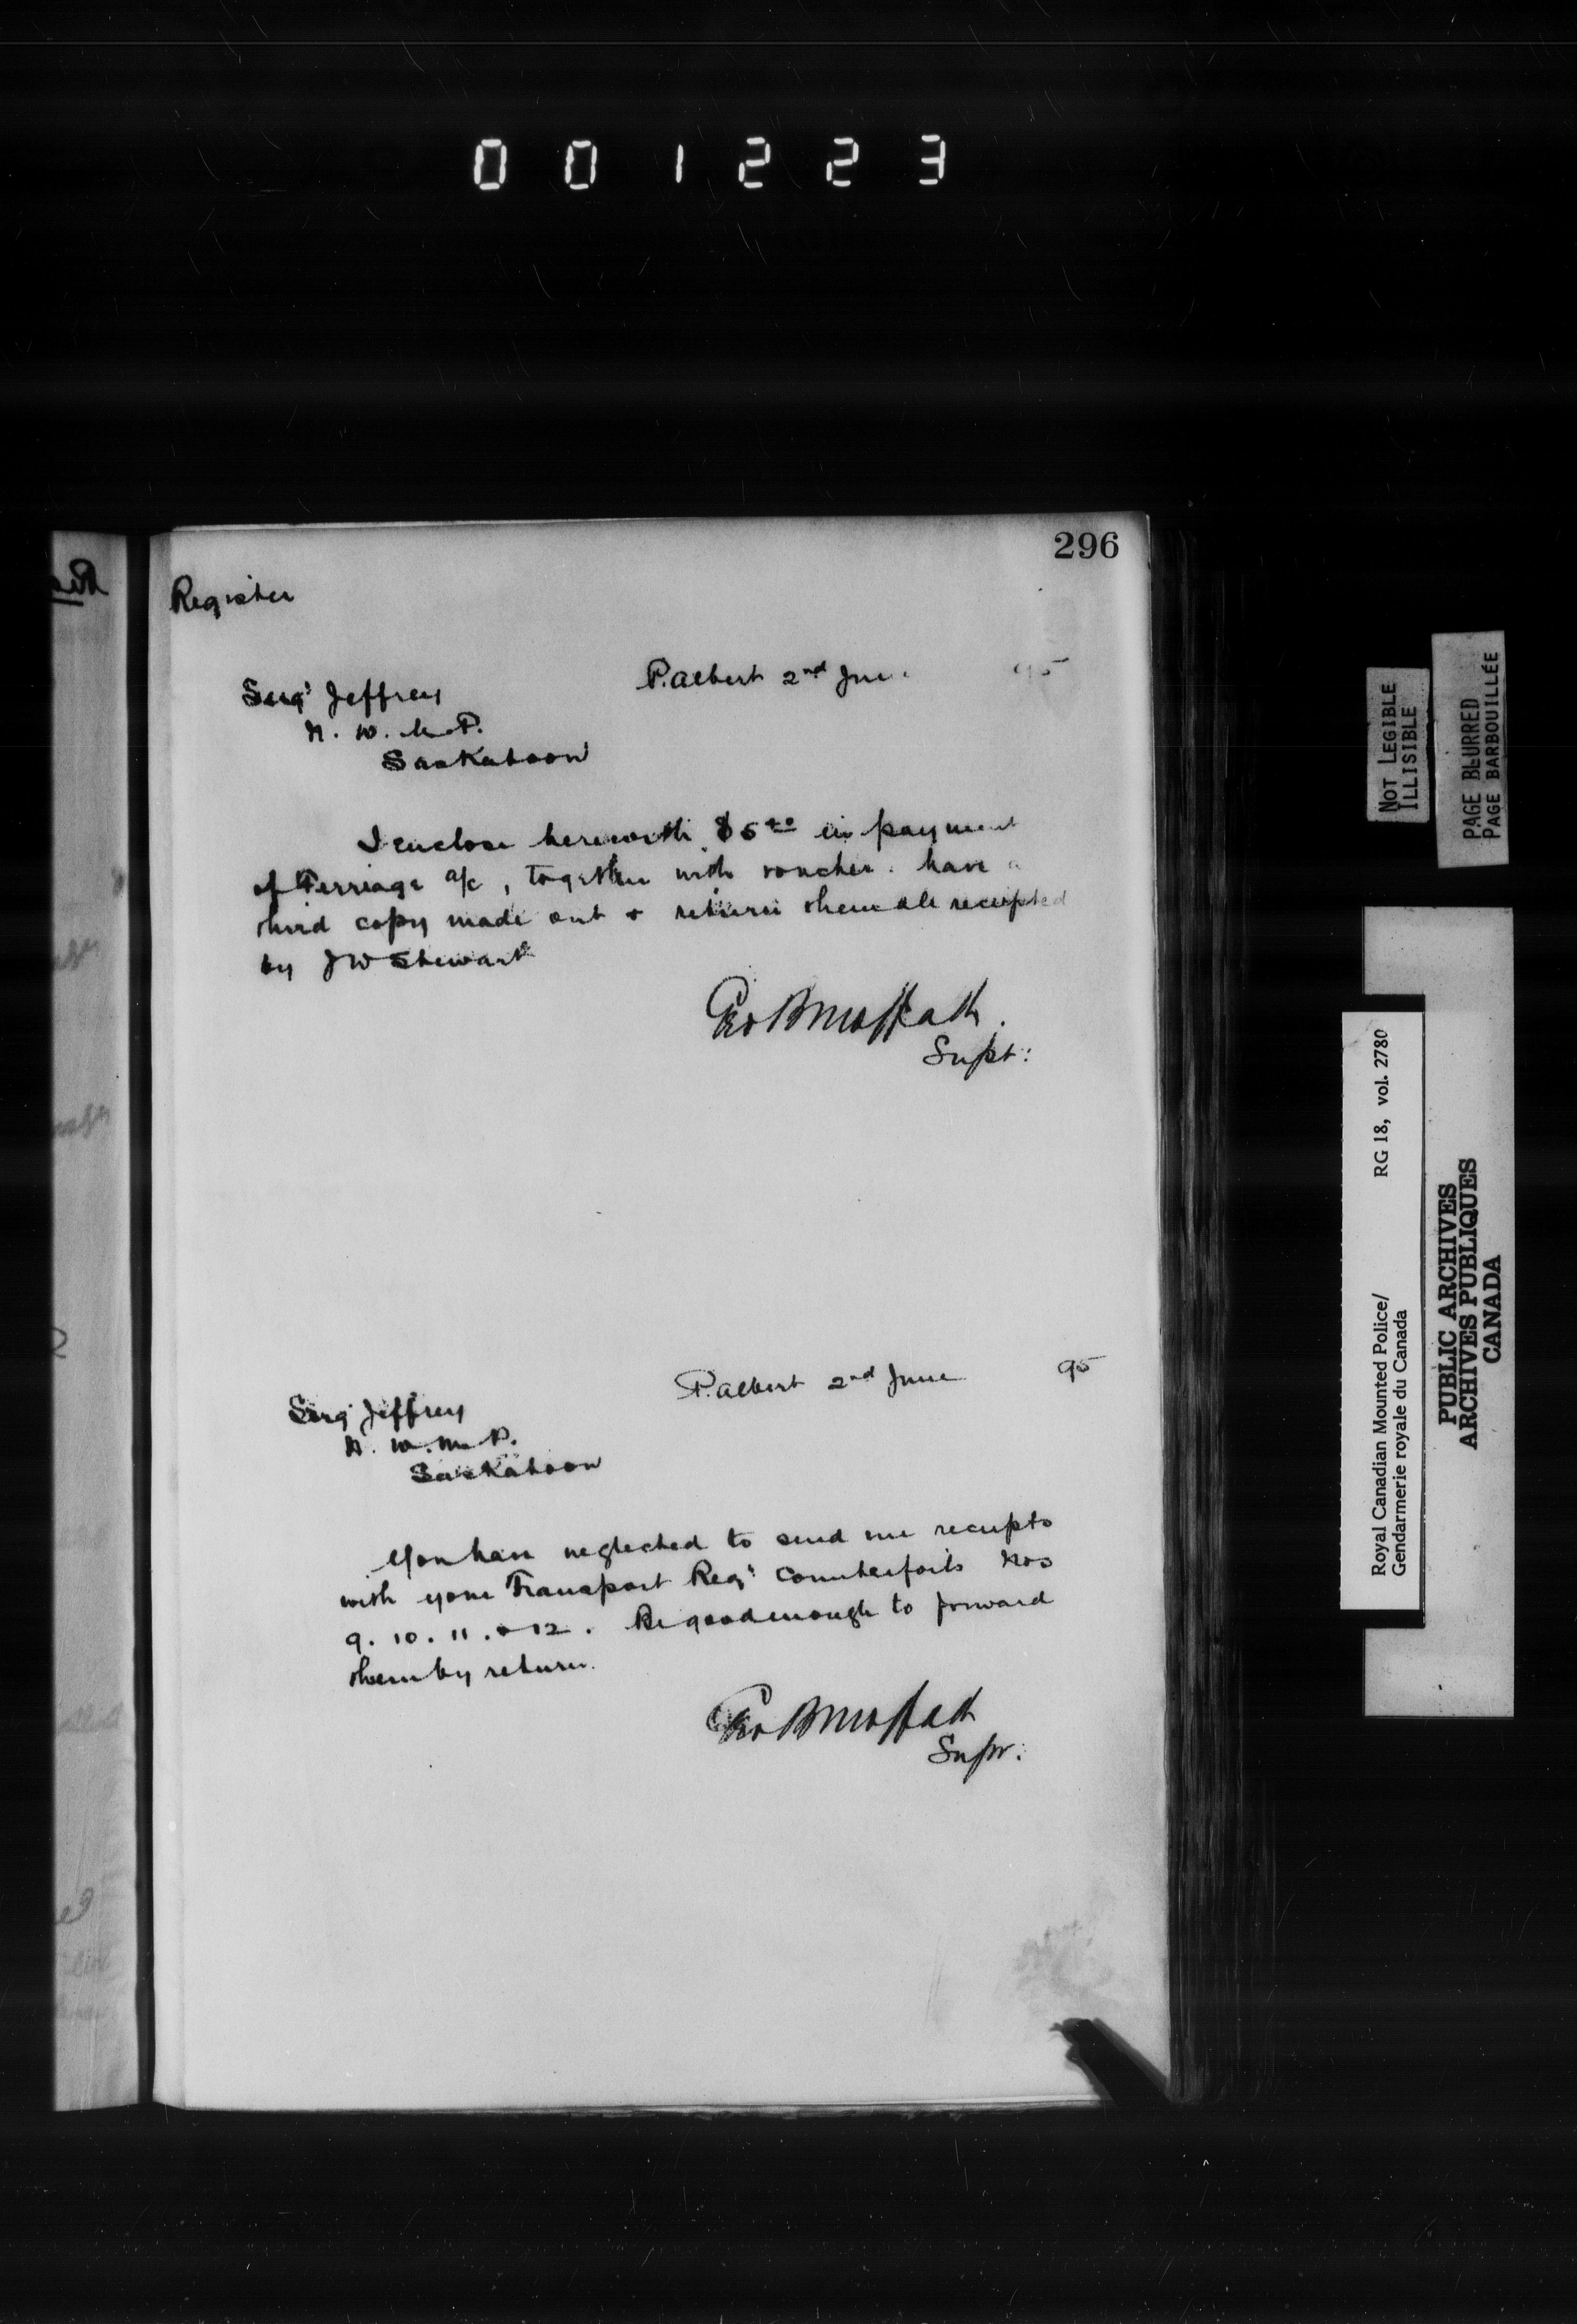 001223
296
Register
P. Albert 2nd June 95
Sergt Jeffrey
N. W. M. P.
Saskatoon
I enclose herewith $5 in payment
of Ferriage a/c, together with voucher. have a
third copy made out & return them all receipted
by J W Stewart
Geo B Moffatt.
Supt:
P. Albert 2nd June 95
Sergt Jeffrey
N. W. M. P.
Saskatoon
You have neglected to send me receipts
with your Transport Reqn Counterfoils Nos
9. 10. 11. & 12. Be good enough to forward
them by return.
Geo B Moffatt
Supt:
NOT LEGIBLE
ILLISIBLE
PAGE BLURRED
PAGE BARBOUILLÉE
Royal Canadian Mounted Police/ RG 18, vol. 2780
Gendarmerie royale du Canada
PUBLIC ARCHIVES
ARCHIVES PUBLIQUES
CANADA